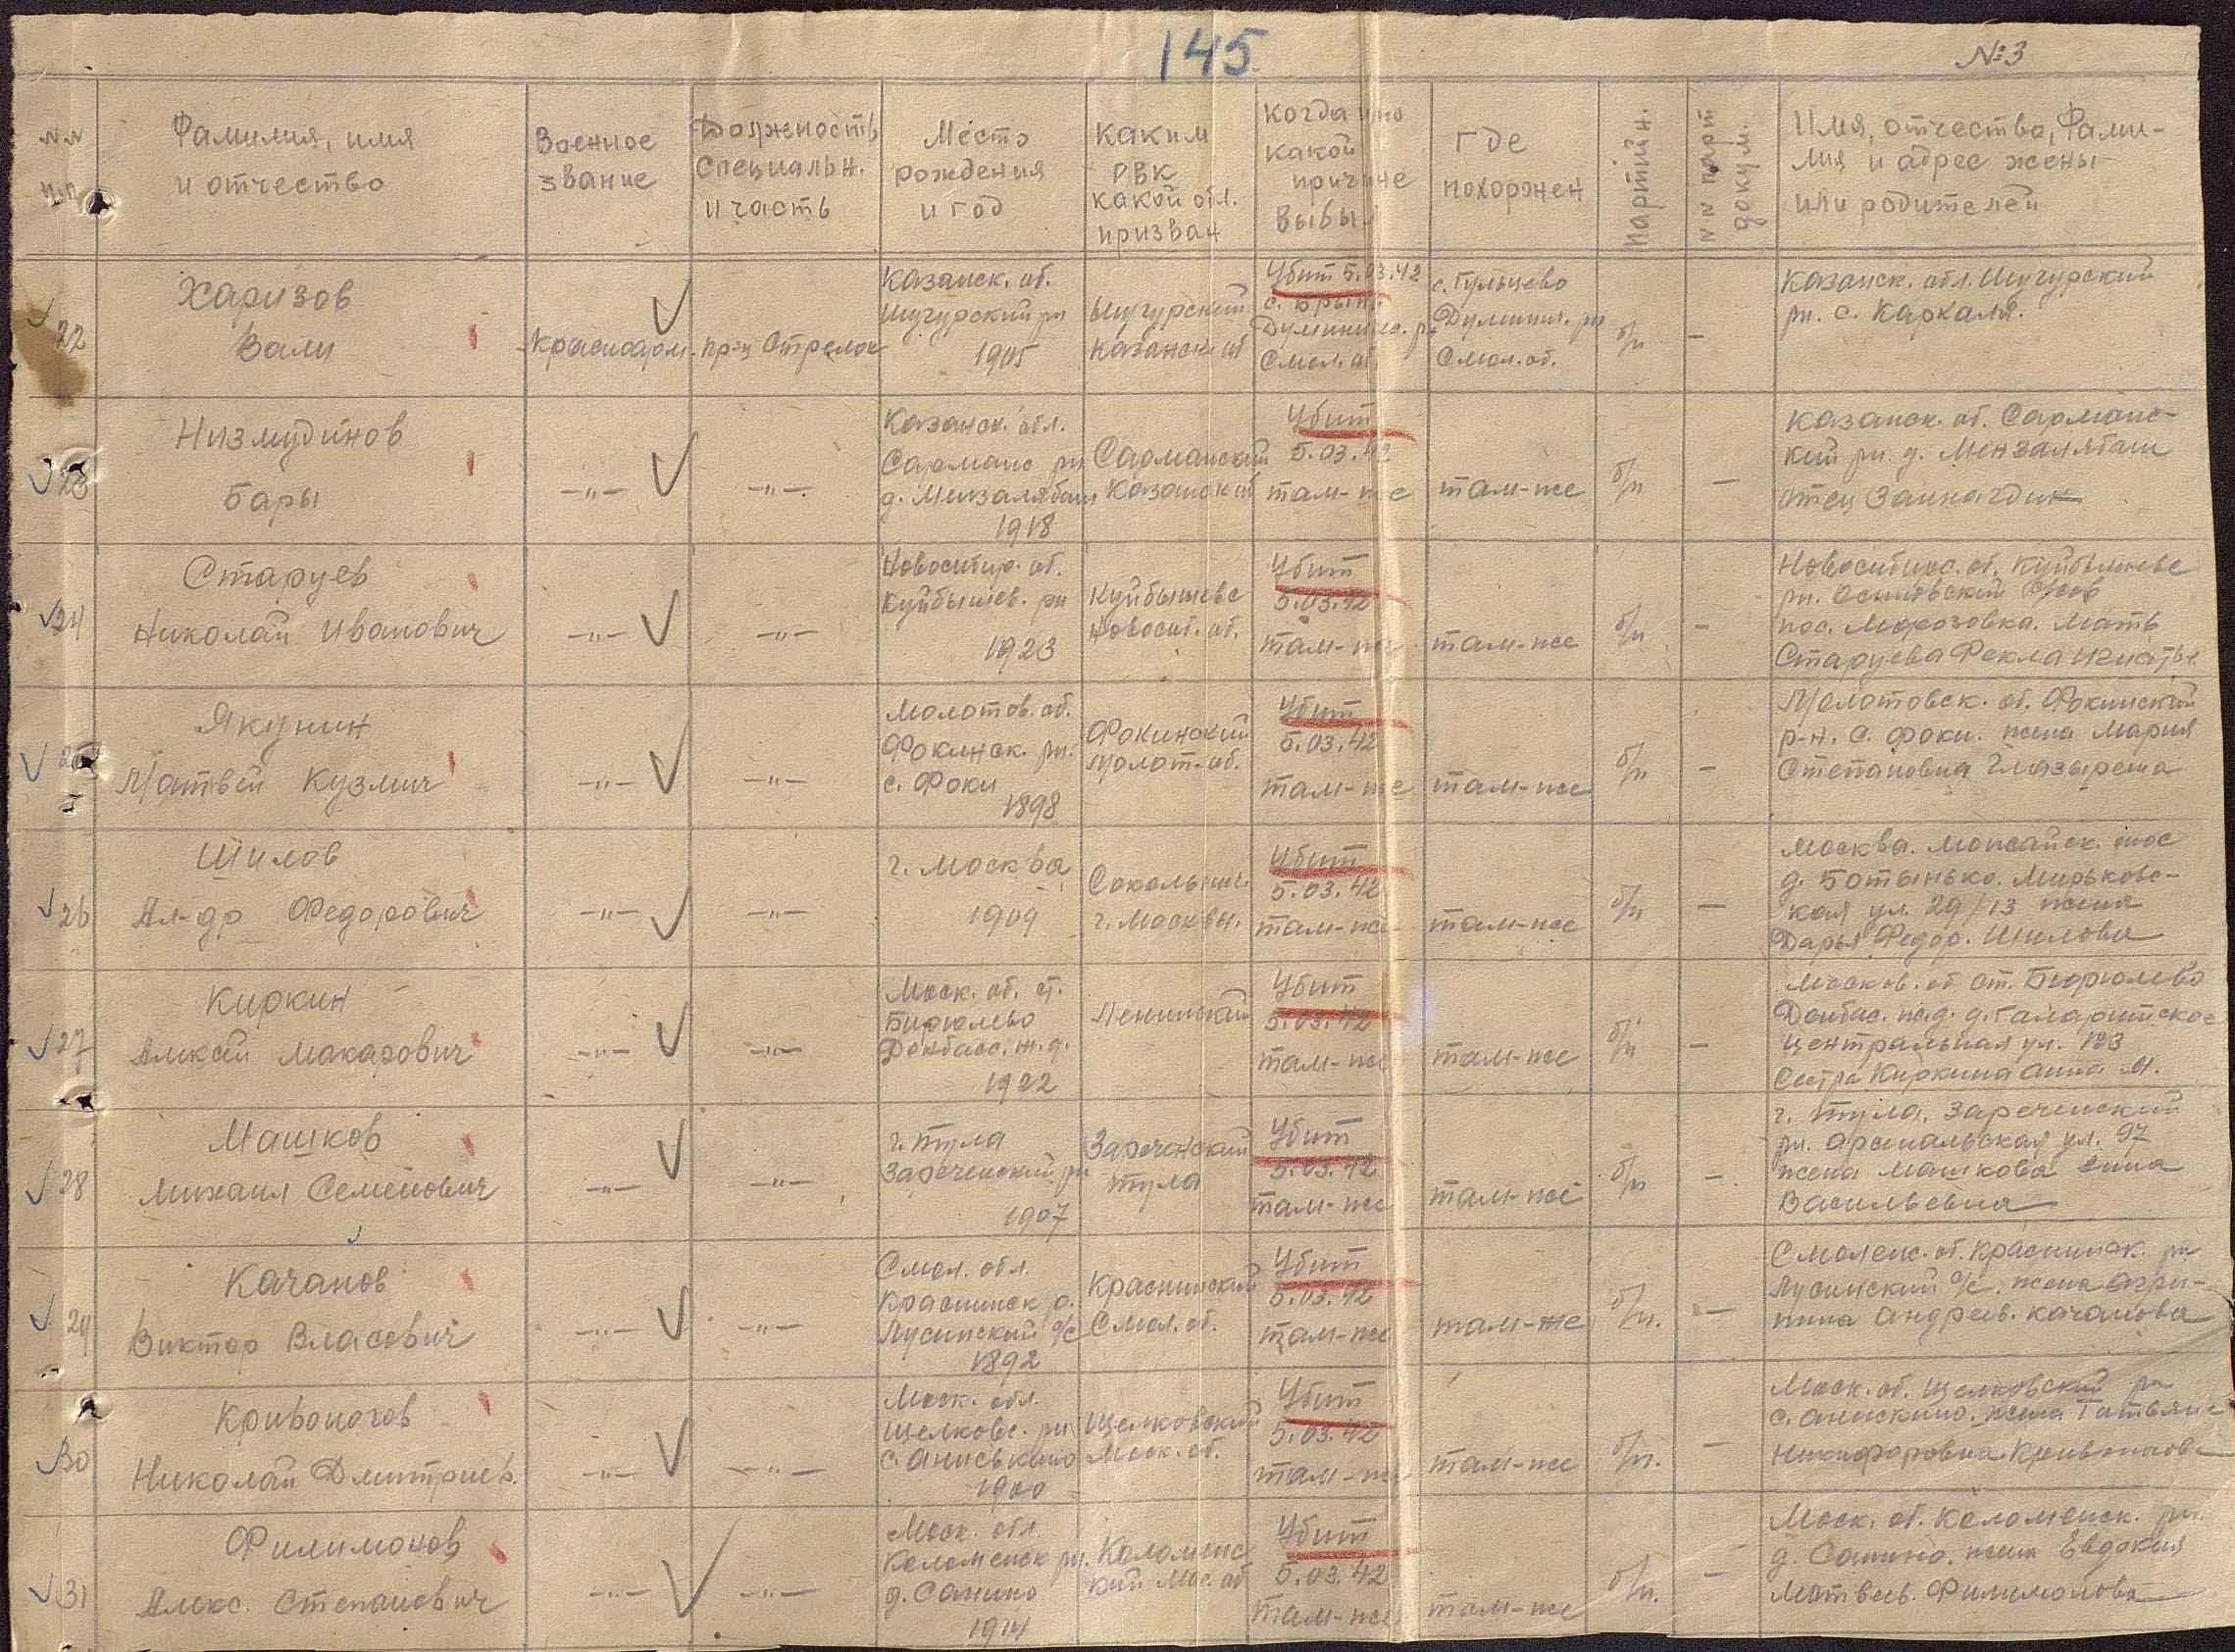 145
№3
N.N п.п
Фамилия, имя и отчество
Военное звание
Должность специальн. и часть
Место рождения и год
Каким РВК какой обл. призван
Когда и по какой причине выбыл
Где похоронен
Партийн.
NN парт докум.
Имя, отчество, Фамилия и адрес жены или родителей
22
Харизов
Вали
Красноарм.
пр-ц Стрелок
Казанск. об.
Шугурский рн
1905
Шугурский
Казанск. об
Убит 5.03.42
с. Брынь
Думинич. рн
Смол. об.
с. Гульцево
Думинич. рн
Смол. об.
б/п
—
Казанск. обл. Шугурский
рн. с. Каркаля.
23
Низмудинов
Бары
—"—
—"—
Казанск. обл.
Сарманс рн
д. Мензалябаш
1918
Сармански��
Казанск об
Убит
5.03.42
там-же
там-же
б/п
—
Казанск. об. Сарманс-
кий рн. д. Мензалябаш
отец
24
Старцев
Николай Иванович
—"—
—"—
Новосибир. об.
Куйбышев. рн
1923
Куйбышевс
Новосиб. об.
Убит
5.03.42
там-же
там-же
б/п
—
Новосибирс. об. Куйбышевс
рн. Осиновский
пос. Морозовка. Мать
Старцева Фекла Игнатье
25
Якунин
Матвей Кузмич
—"—
—"—
Молотов. об.
Фокинск. рн.
с. Фоки
1898
Фокинский
Молот. об.
Убит
5.03.42
там-же
там-же
б/п
—
Молотовск. об. Фокинский
р-н. с. Фоки. жена Мария
Степановна
26
Шилов
Ал-др Федорович
—"—
—"—
г. Москва
1909
Сокольнич.
г. Москвы.
Убит
5.03.42
там-же
там-же
б/п
—
Москва. Можайск. шос
д.
ул. 29/13 жена
Дарья Федор. Шилова
27
Киркин
Алексей Макарович
—"—
—"—
Моск. об. ст.
Бирюлево
Донбасс. ж.д.
1922
Ленинский
Убит
5.03.42
там-же
там-же
б/п
—
Москов. об ст. Бюрюлево
Донбас. ж.д.
центральная ул. 123
Сестра Киркина Анна М.
28
Машков
Михаил Семенович
—"—
—"—
г. Тула
Зареченский рн
1907
Зареченский
Тула
Убит
5.03.42
там-же
там-же
б/п
—
г. Тула, Зареченский
рн. Арсенальская ул. 97
жена Машкова
Васильевна
29
Качанов
Виктор Власович
—"—
—"—
Смол. обл.
Краснинск р.
Лусинский с/с
1892
Краснинский
Смол. об.
Убит
5.03.42
там-же
там-же
б/п.
—
Смоленс. об. Краснинск. рн
Лусинский с/с. жена Агри-
пина Андреев. Качанова
30
Кривоногов
Николай Дмитриев.
—"—
—"—
Моск. обл.
Щелковс. рн
с. Аниськино
1900
Щелковский
Моск. об.
Убит
5.03.42
там-же
там-же
б/п.
—
Моск. об. Щелковский рн
с. Анискино. жена Татьяна
Никифоровна Кривоногова
31
Филимонов
Алекс. Степанович
—"—
—"—
Моск. обл.
Коломенск рн.
д. Санино
Коломенс
кий Мос. об
Убит
5.03.42
там-же
там-же
б/п.
—
Моск. об. Коломенск. рн.
д. Санино. жена Евдокия
Матвеев. Филимонова